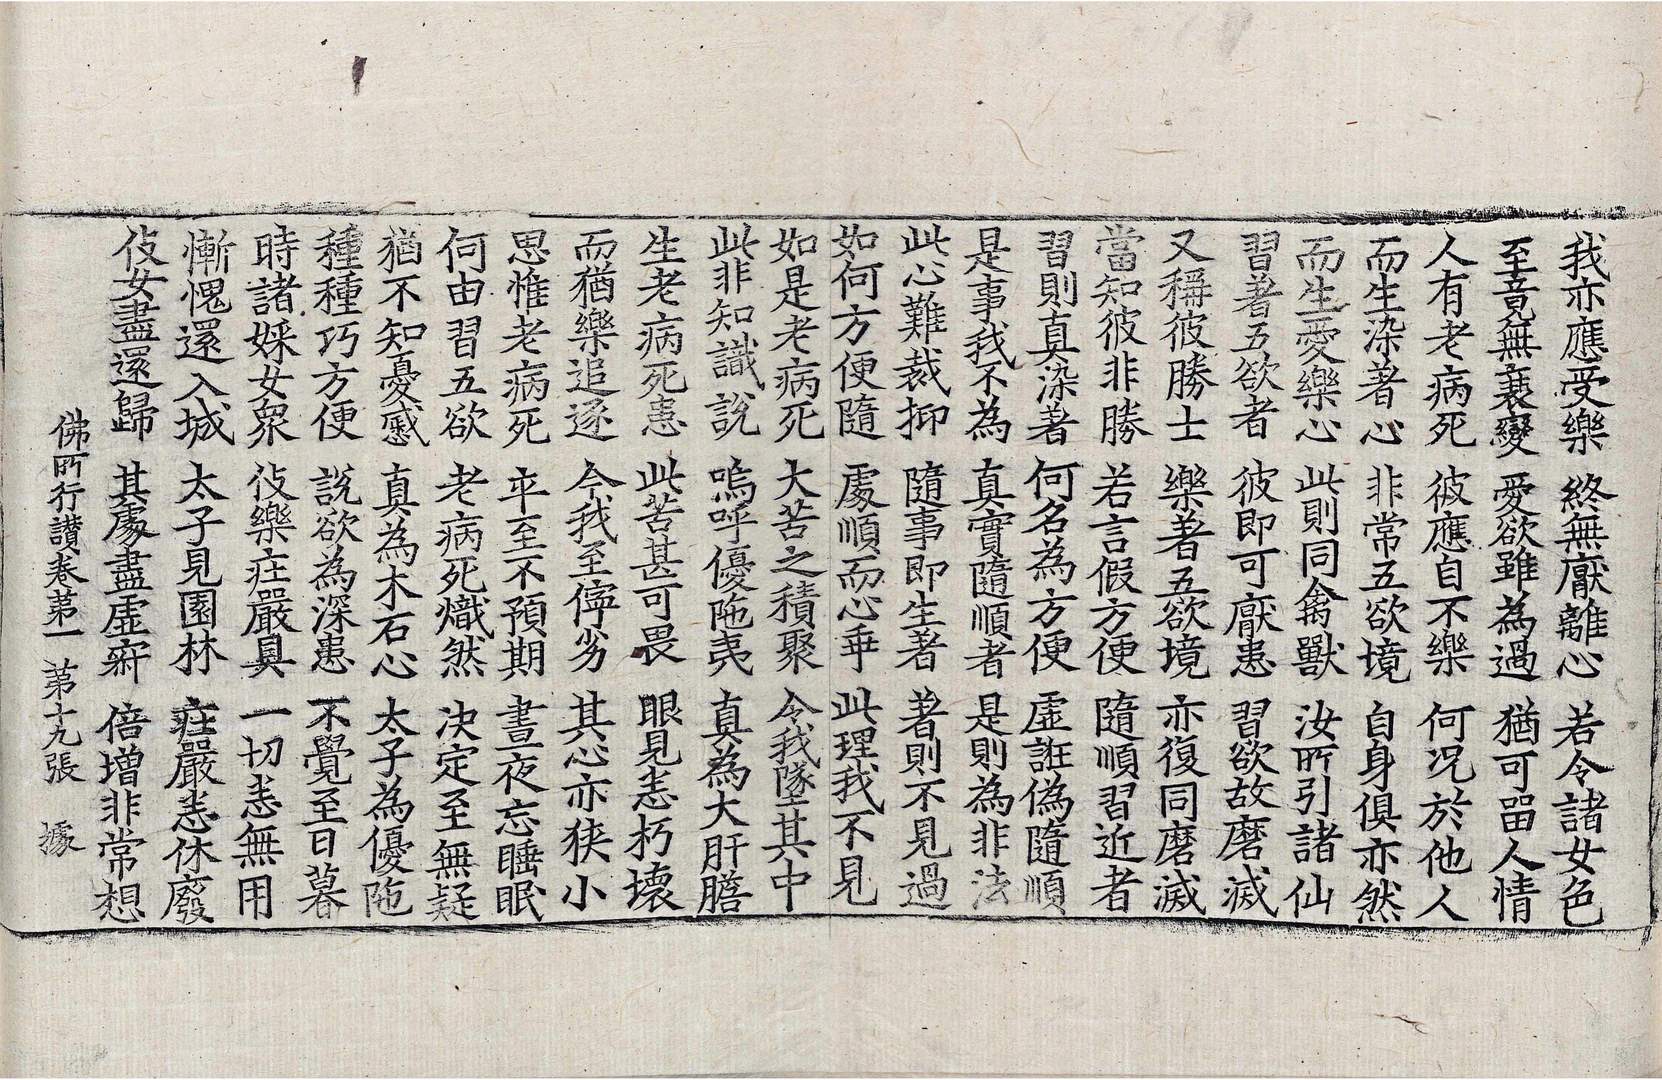 我亦應受樂 終無厭離心 若令諸女色
至竟無衰變 愛欲雖為過 猶可留人情
人有老病死 彼應自不樂 何况於他人
而生染著心 非常五欲境 自身俱亦然
而生愛樂心 此則同禽獸 汝所引諸仙
習著五欲者 彼即可厭患 習欲故磨滅
又稱彼勝士 樂著五欲境 亦復同磨滅
當知彼非勝 若言假方便 隨順習近者
習則真染著 何名為方便 虛誑偽隨順
是事我不為 真實隨順者 是則為非法
此心難裁抑 隨事即生著 著則不見過
如何方便隨 處順而心乖 此理我不見
如是老病死 大苦之積聚 令我墜其中
此非知識說 嗚呼優陁夷 真為大肝膽
生老病死患 此苦甚可畏 眼見悉朽壞
而猶樂追逐 今我至儜劣 其心亦狹小
思惟老病死 卒至不預期 晝夜忘睡眠
何由習五欲 老病死熾然 决定至無疑
猶不知憂慼 真為木石心 太子為優陁
種種巧方便 說欲為深患 不覺至日暮
時諸婇女衆 伎樂莊嚴具 一切悉無用
慚愧還入城 太子見園林 莊嚴悉休廢
伎女盡還歸 其處盡虛寂 倍增非常想
佛所行讃卷苐一 苐十九張 據